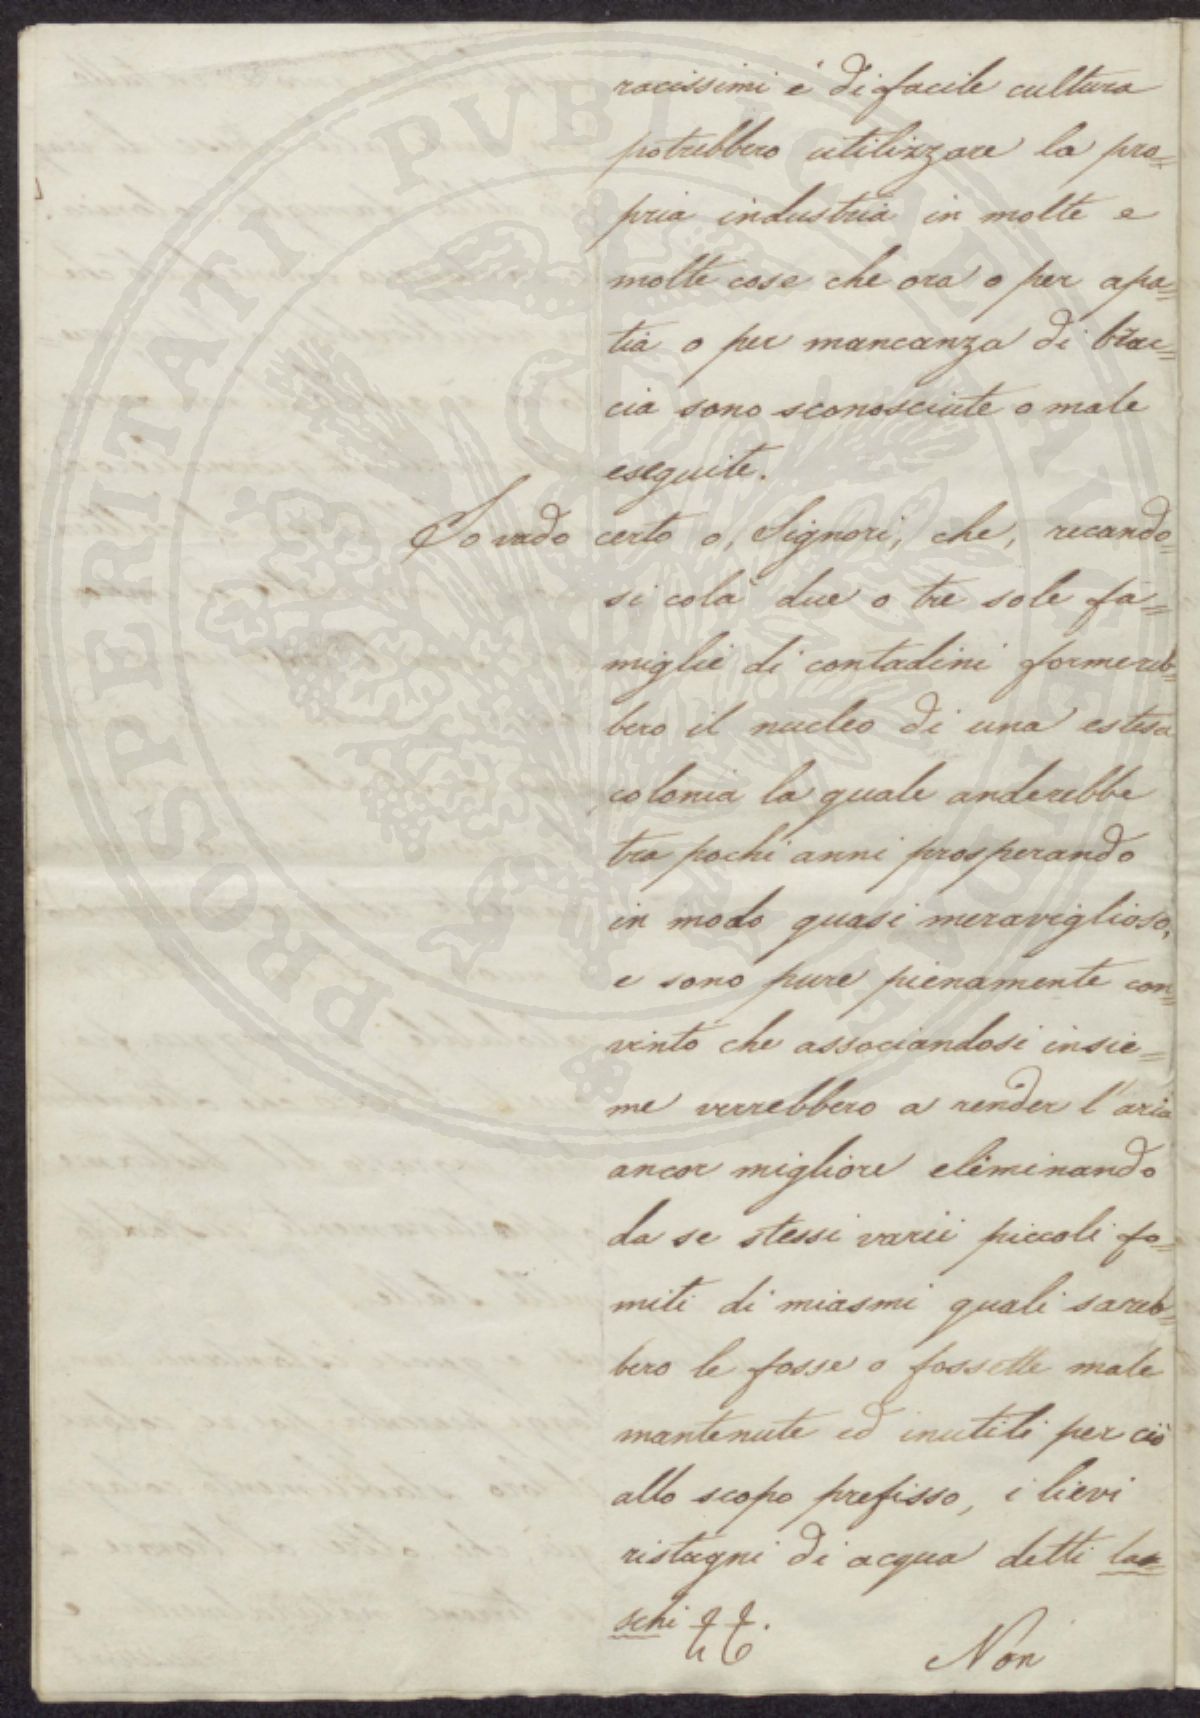 racissimi e di facile cultura
potrebbero utilizzare la pro=
pria industria in molte e
molte cose che ora o per apa=
tia o per mancanza di brac=
cia sono sconosciute o male
eseguite.
Io vado certo o, Signori, che, recando=
si colà due o tre sole fa=
miglie di contadini formereb=
bero il nucleo di una estesa
colonia la quale anderebbe
tra pochi anni prosperando
in modo quasi meraviglioso,
e sono pure pienamente con=
vinto che associandosi insie=
me verrebbero a render l'aria
ancor migliore eliminando
da se stessi varii piccoli fo=
miti di miasmi quali sareb=
bero le fosse o fossette male
mantenute ed inutili per ciò
allo scopo prefisso, i lievi
ristagni di acqua detti
schi
Non
PROSPERITATI PVBLICAE AVGENDAE